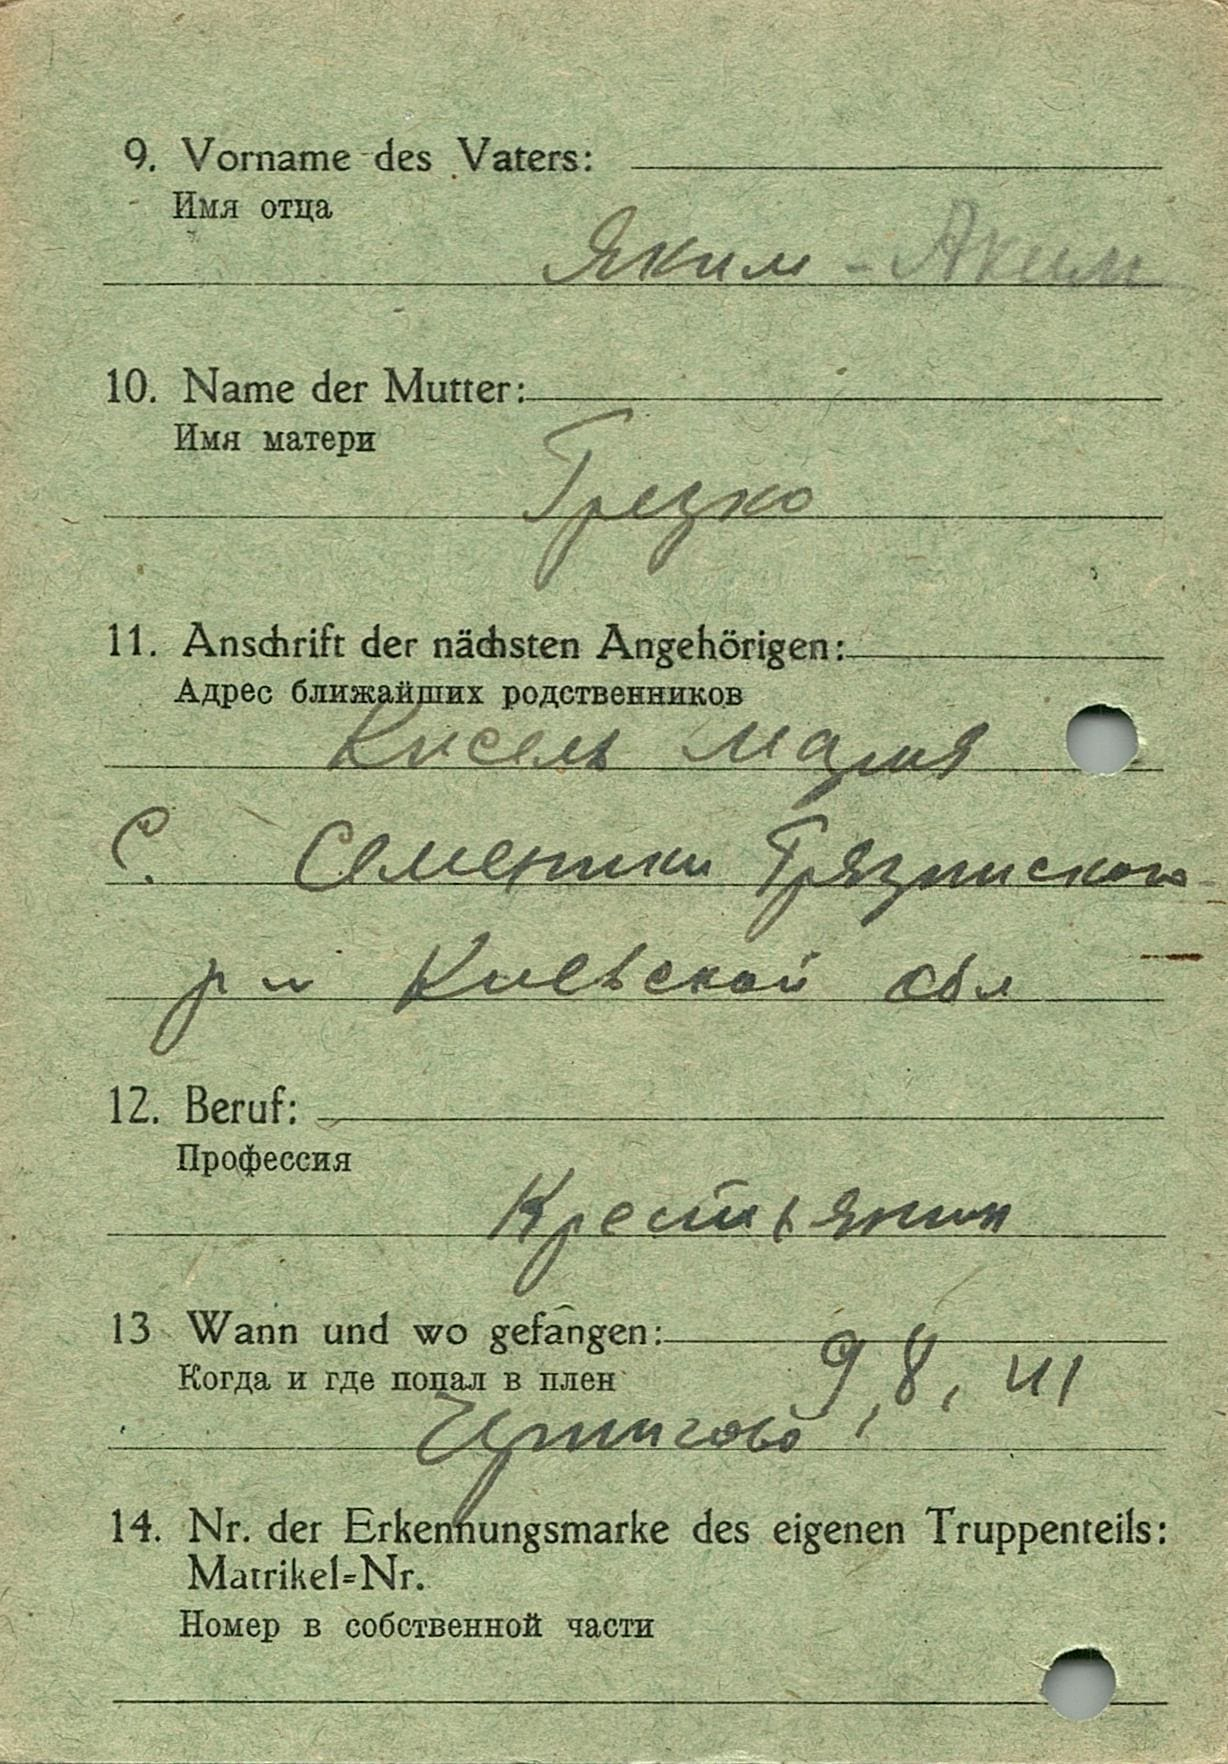 9. Vorname des Vaters:
Имя отца
Яким - Аким
10. Name der Mutter:
Имя матери
Грезко
11. Anschrift der nächsten Angehörigen:
Адрес ближайших родственников
Кисель Мария
С. Семеники Грязниского
р н Киевской обл
12. Beruf:
Профессия
Крестьянин
13 Wann und wo gefangen:
Когда и где попал в плен
9, 8, 41
14. Nr. der Erkennungsmarke des eigenen Truppenteils:
Matrikel=Nr.
Номер в собственной части